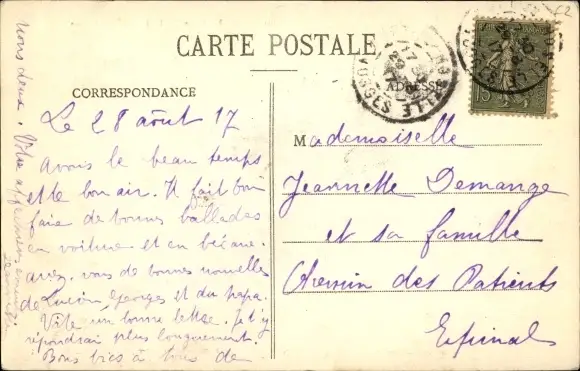 CARTE POSTALE
CORRESPONDANCE
ADRESSE
Le 28 août 17
Avons le beau temps
et le bon air. Il fait bon
faie de bonnes ballades
en voiture et en bécane.
avez-vous de bonnes nouvelles
de Lucien, Georges et du papa.
Vite un bonne lettre. Je t'y
répondrai plus longuement.
Bons bies à tous de
nous deux. Votre
Mademoiselle
Jeannette Demange
et sa famille
Chemin des Patients
Epinal
VOSGES
15